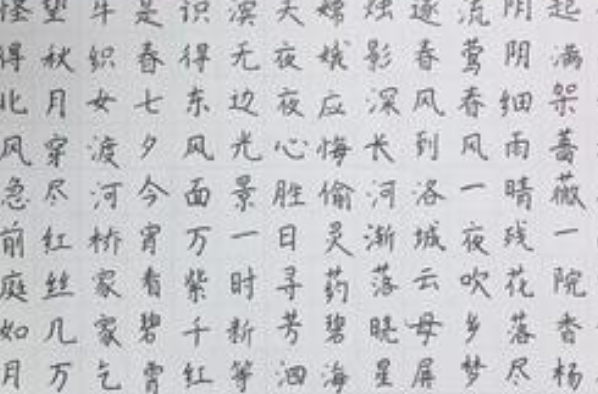 起满架蔷薇一院香杨
阴阴细雨晴残花落尽
流莺春风一夜吹乡梦
逐春风到洛城云母屏
烛影深长河渐落晓星
嫦娥应悔偷灵药碧海
天夜夜心胜日寻芳泗
滨无边光景一时新等
识得东风面万紫千红
是春七夕今宵看碧霄
牛织女渡河桥家家乞
望秋月穿尽红丝几万
怪得北风急前庭如月